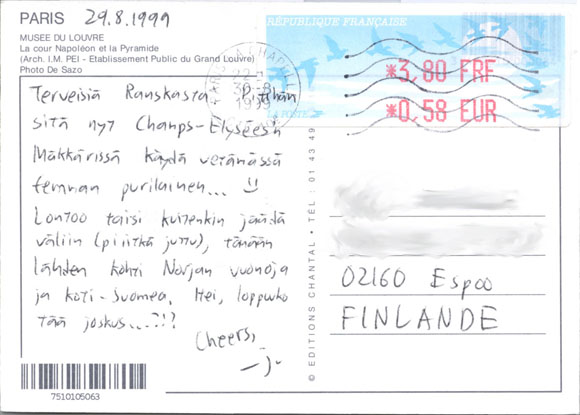 PARIS 29.8.1999
MUSEE DU LOUVRE
La cour Napoléon et la Pyramide
(Arch. I.M. PEI - Etablissement Public du Grand Louvre)
Photo De Sazo
Terveisiä Ranskasta. Pitähän
sitä nyt Champs-Elysées'n
Mäkkärissä käydä vetämässä
femman purilainen...
Lontoo taisi kuitenkin jäädä
väliin (pitkä juttu), tänään
lähden kohti Norjan vuonoja
ja koti-Suomea. Hei, loppuuko
tää joskus...?!?
Cheers,
7510105063
© EDITIONS CHANTAL • TÉL : 01 43 49
RÉPUBLIQUE FRANÇAISE
*3,80 FRF
*0,58 EUR
LA POSTE
1999
02160 Espoo
FINLANDE